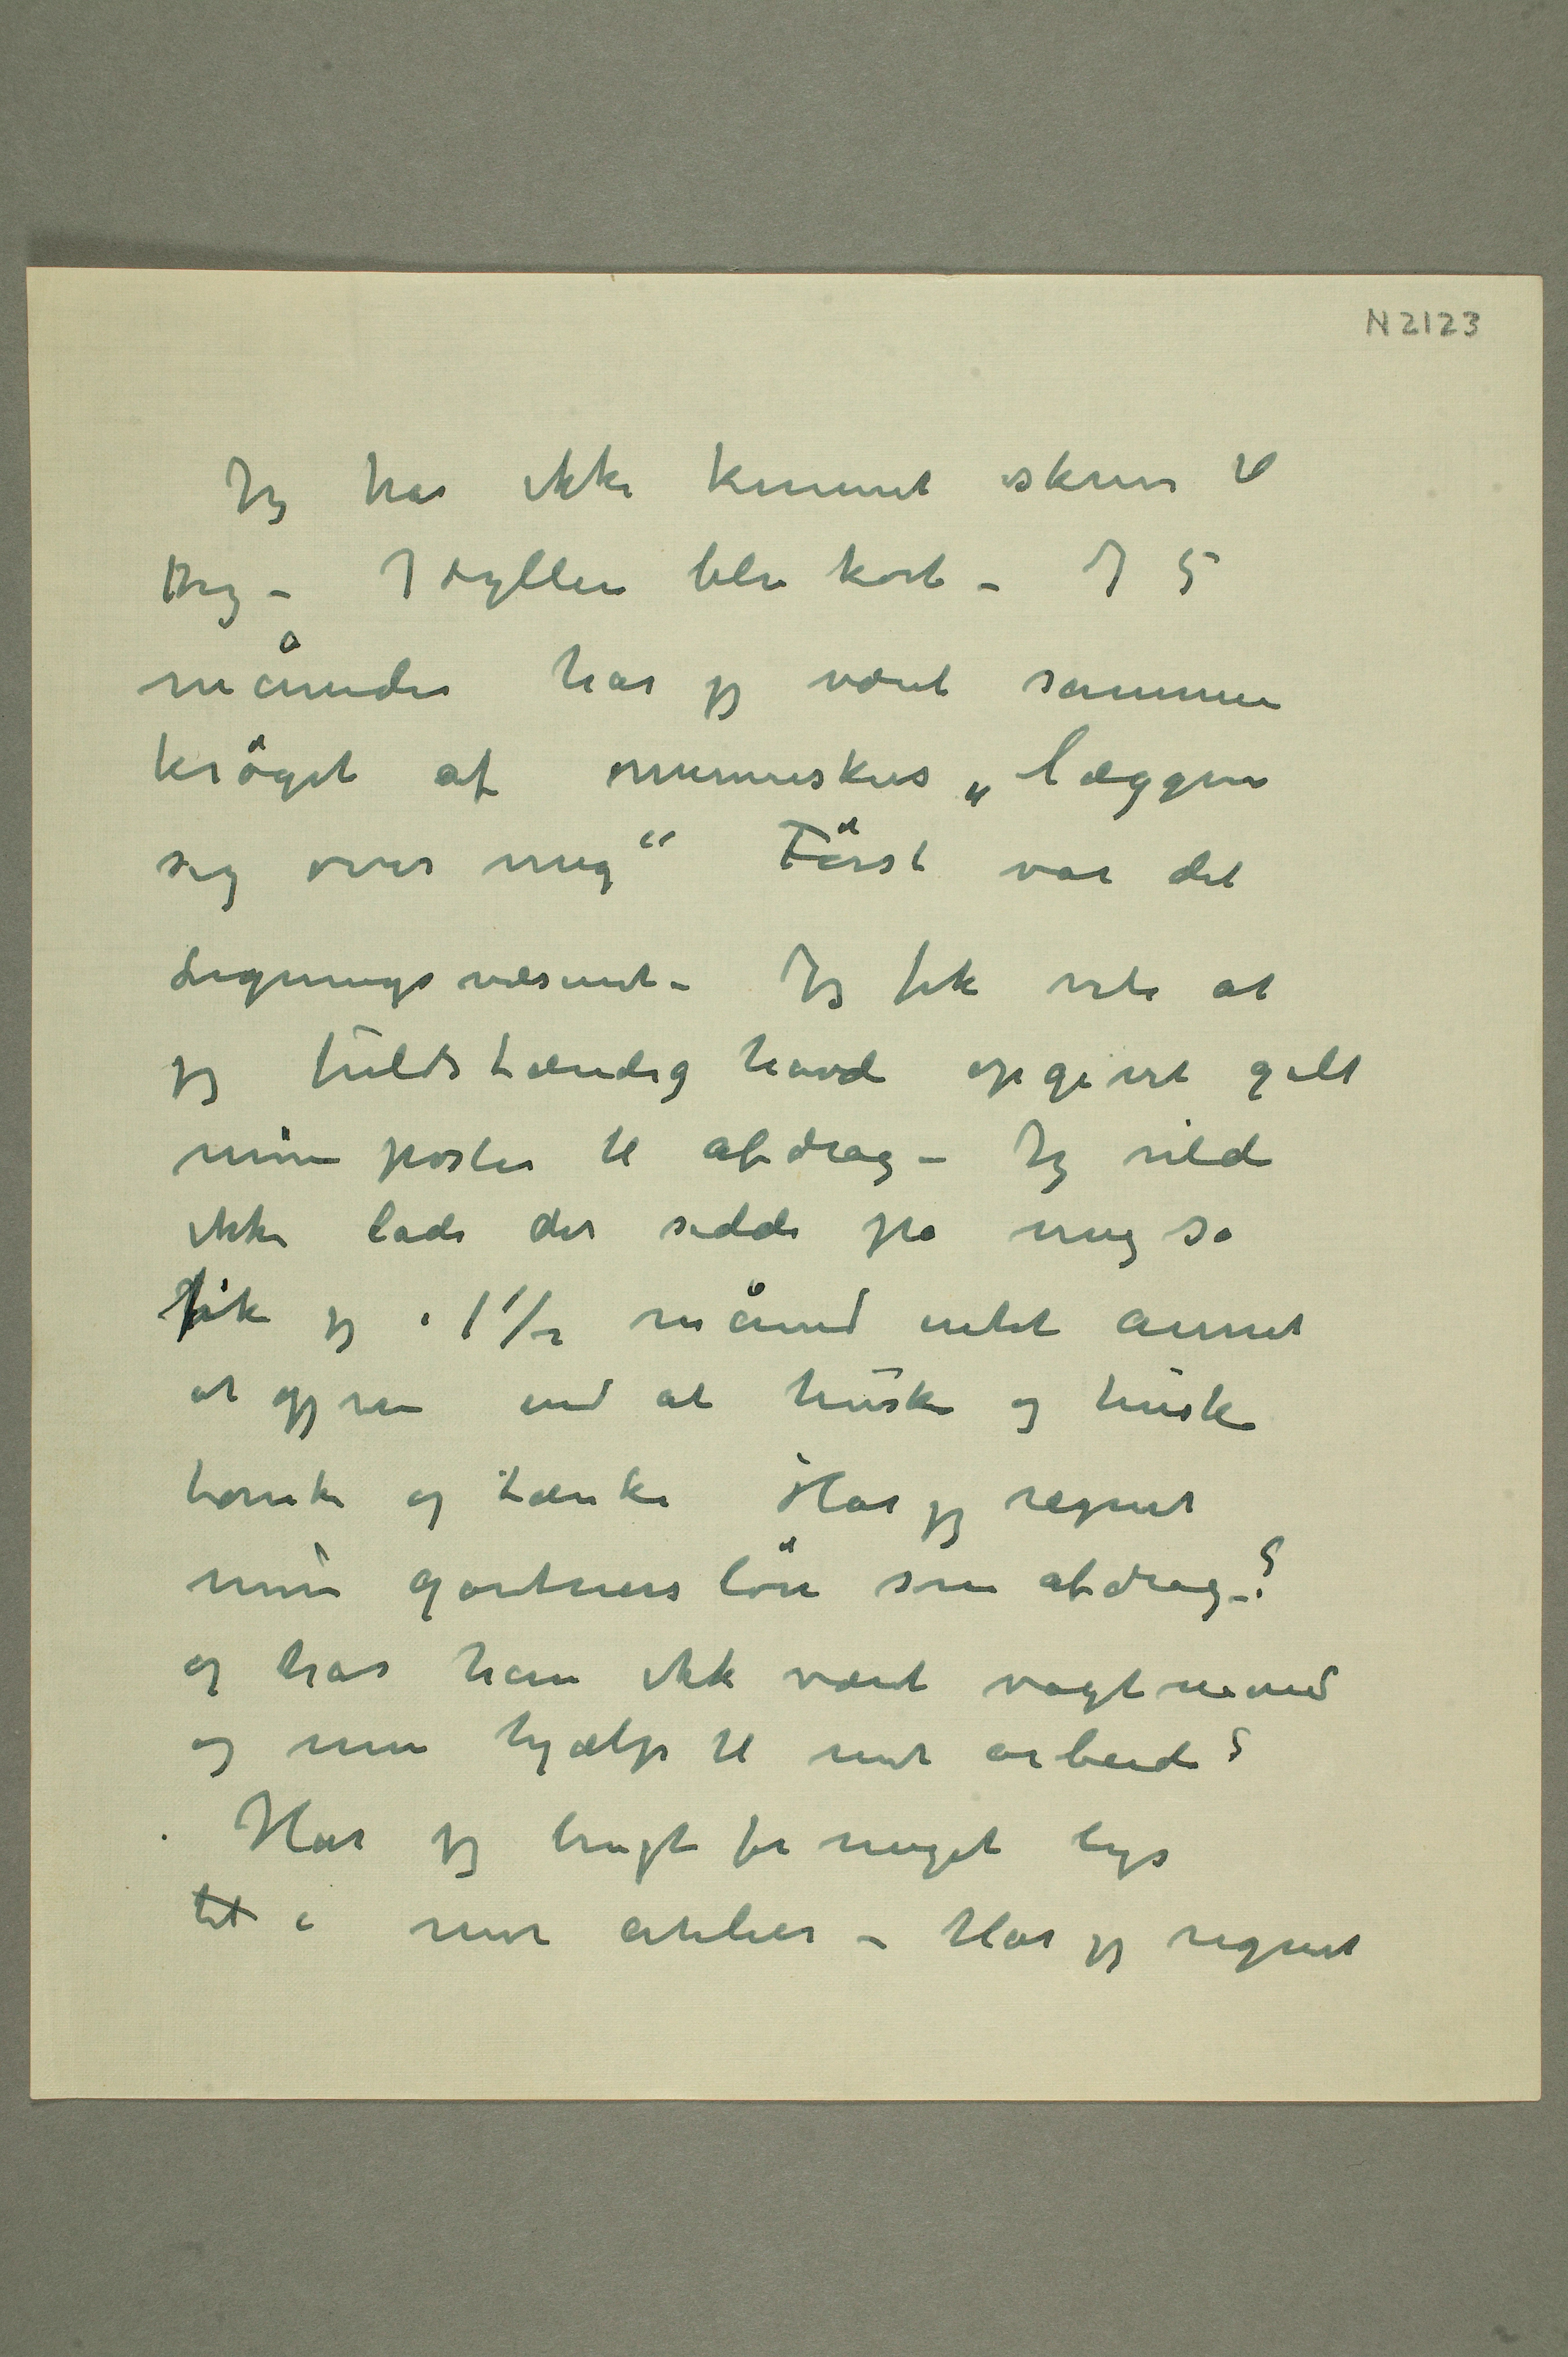 N 2123
Jeg har ikke kunnet skrive til
Dig – Idyllen blev kort – I 5
måneder har jeg været sammen
krøget af menneskers „læggen
sig over mig“ Først var det
Ligningsvæsenet – Jeg fik vite at
jeg fuldstændig havde opgivet galt
mine poster til afdrag – Jeg vilde
ikke lade det sidde på mig så
fik jeg i 1 1/2 måned intet annet
at gjøre end at huske og huske
tænke og tænke Har jeg regnet
min gartners løn som afdrag –?
og har han ikke været vagtmand
og min hjælp til mit arbeide?
Har jeg brugt for meget lys
til i mit atelier – Har jeg regnet